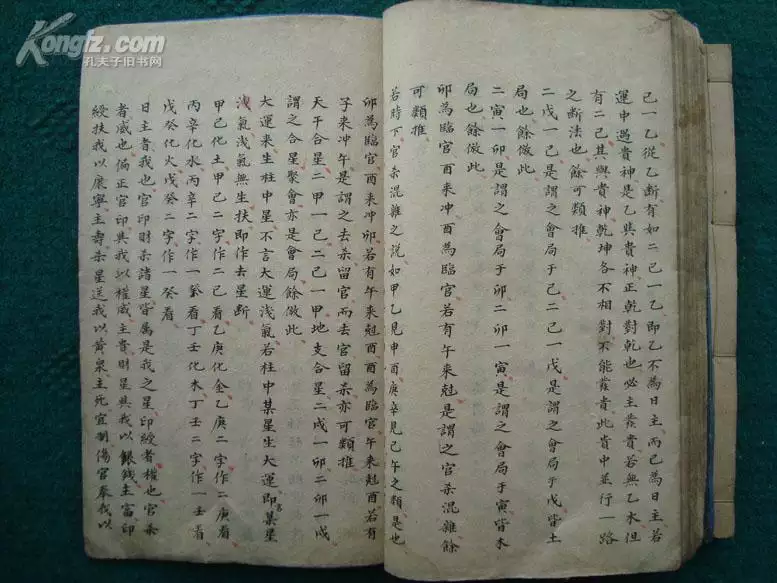 Kongfz.com
孔夫子旧书网
己一乙從乙斷有如二己一乙即乙不為日主而己為日主若
運中遇貴神是乙與貴神正乾對乾也必主發貴若無乙木但
有二己其與貴神乾坤各不相對不能發貴此貴中並行一路
之斷法也餘可類推
二戊一己是謂之會局于己二己一戊是謂之會局于戊皆土
局也餘倣此
二寅一卯是謂之會局于卯二卯一寅是謂之會局于寅皆木
局也餘倣此
卯為臨官酉来冲酉為臨官若有午来尅是謂之官杀混雜餘
可類推
若時下官杀混雜之説如甲乙見申酉庚辛見巳午之類是也
卯為臨官酉来冲卯若有午来尅酉酉為臨官午来尅酉若有
子来冲午是謂之去杀留官而去官留杀亦可類推
天干合星二甲一己二己一甲地支合星二戌一卯二卯一戌
謂之合星聚會亦是會局餘倣此
大運来生柱中星不言大運浅氣若柱中某星生大運即某星
浅氣浅氣無生扶即作去星斷
甲己化土甲己二字作二己看乙庚化金乙庚二字作二庚看
丙辛化水丙辛二字作一癸看丁壬化木丁壬二字作一壬看
戊癸化火戊癸二字作一癸看
日主者我也官印財杀諸星皆属是我之星印綬者權也官杀
者威也偏正官印與我以權威主貴財星與我以銀錢主富印
綬扶我以康寧主壽杀星送我以黄泉主死宜制傷官辱我以